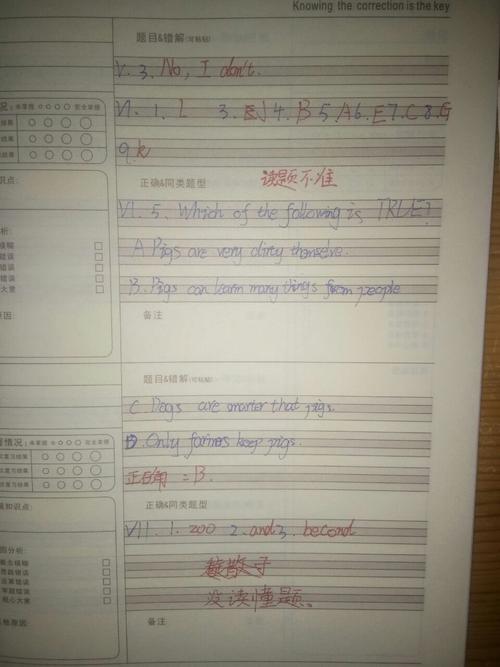 Knowing the correction is the key
题目&错解(可粘贴)
V. 3. No, I don't.
VI. 1. L 3. EJ 4. B 5. A 6. E 7. C 8. G
9. K
正确&同类题型 读题不准
VI. 5. Which of the following is TRUE?
A Pigs are very dirty themselve.
B. Pigs can learn many things from people
备注
题目&错解(可粘贴)
C. Dogs are smarter that pigs.
D. Only farmes keep pigs.
=B.
正确&同类题型
VII. 1. zoo 2. and 3. becond
没读懂题。
备注
况: 未掌握 完全掌握
结果
结果
结果
识点:
析:
模糊
错误
错误
错误
大意
原因:
习情况: 未掌握 完全掌握
次复习结果
次复习结果
次复习结果
属知识点:
因分析:
概念模糊
思路错误
运算错误
审题错误
粗心大意
他原因: